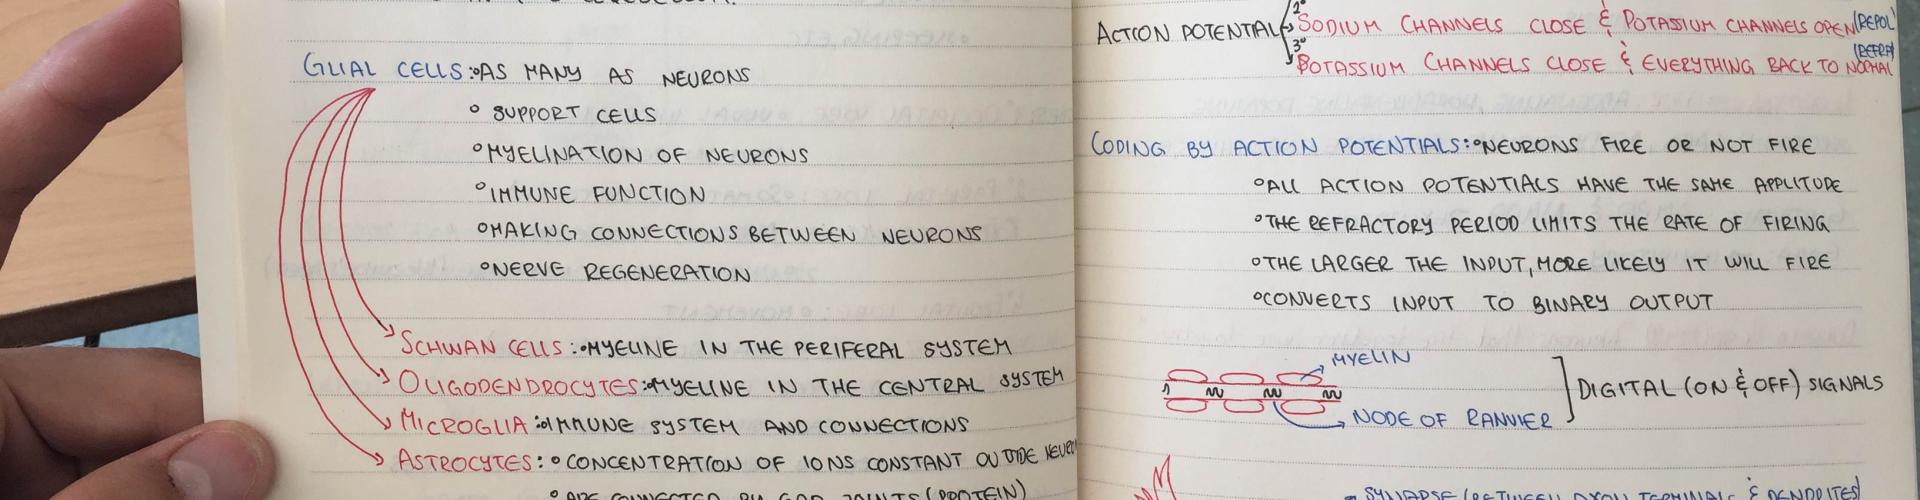 GLIAL CELLS: °AS MANY AS NEURONS
° SUPPORT CELLS
°MYELINATION OF NEURONS
°IMMUNE FUNCTION
°MAKING CONNECTIONS BETWEEN NEURONS
°NERVE REGENERATION
SCHWAN CELLS: °MYELINE IN THE PERIFERAL SYSTEM
OLIGODENDROCYTES: °MYELINE IN THE CENTRAL SYSTEM
MICROGLIA: °IMMUNE SYSTEM AND CONNECTIONS
ASTROCYTES: ° CONCENTRATION OF IONS CONSTANT OUTSIDE
° ARE CONNECTED BY GAP JOINTS (PROTEIN)
2° SODIUM CHANNELS CLOSE & POTASSIUM CHANNELS OPEN (REPOL
ACTION POTENTIAL
3° POTASSIUM CHANNELS CLOSE & EVERYTHING BACK TO NORMAL (REFRA
CODING BY ACTION POTENTIALS: °NEURONS FIRE OR NOT FIRE
°ALL ACTION POTENTIALS HAVE THE SAME APPLITUDE
°THE REFRACTORY PERIOD LIMITS THE RATE OF FIRING
°THE LARGER THE INPUT, MORE LIKELY IT WILL FIRE
°CONVERTS INPUT TO BINARY OUTPUT
MYELIN
DIGITAL (ON & OFF) SIGNALS
NODE OF RANVIER
SYNAPSE (BETWEEN AXON TERMINALS & DENDRITES)